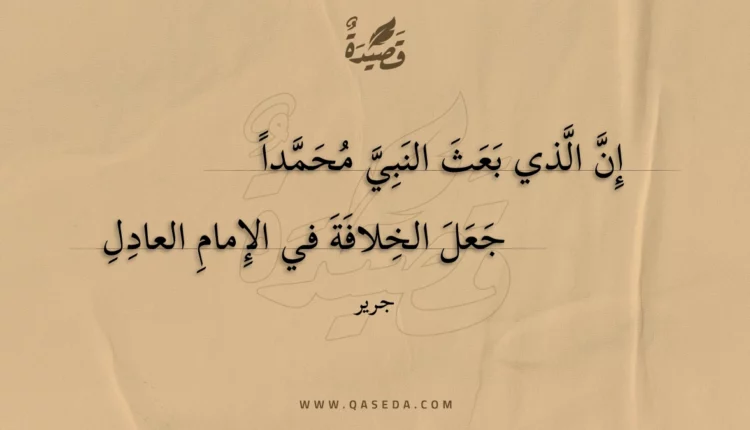 قَصِيدَةٌ
إِنَّ الَّذي بَعَثَ النَبِيَّ مُحَمَّداً
جَعَلَ الخِلافَةَ في الإِمامِ العادِلِ
جرير
WWW.QASEDA.COM